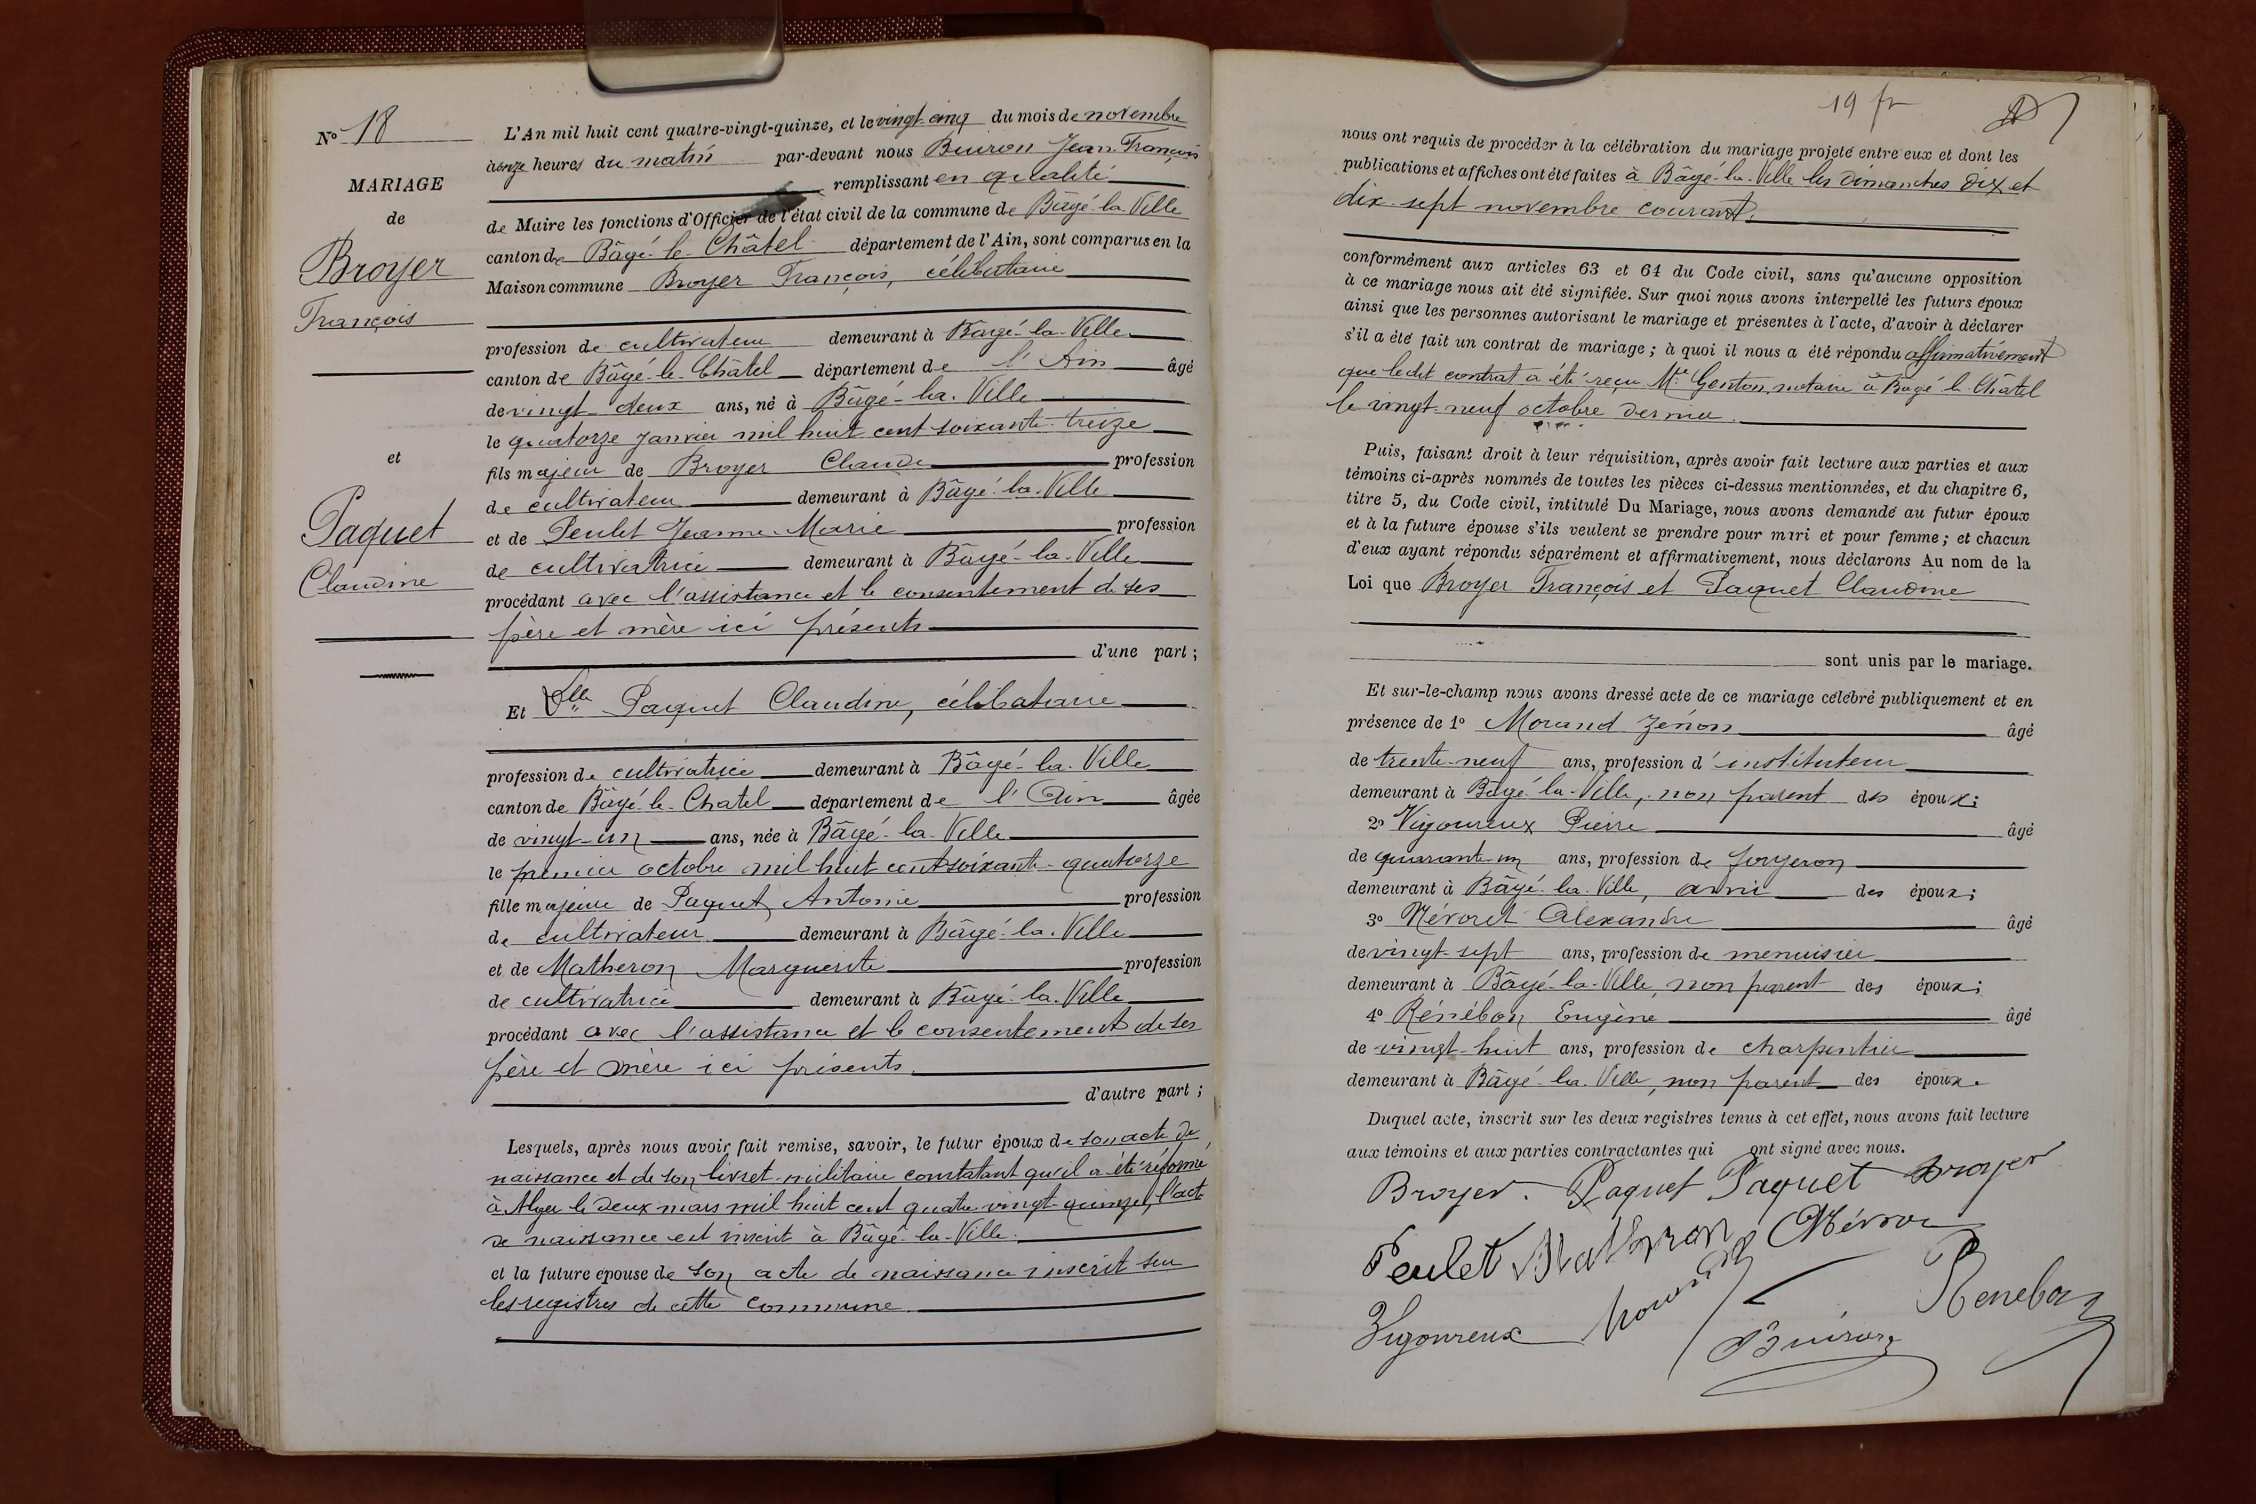 N° 18
MARIAGE
de
Broyer
François
et
Paquet
Claudine
L'An mil huit cent quatre-vingt-quinze, et le vingt-cinq du mois de novembre
à onze heures du matin par-devant nous Buiron Jean-François
remplissant en qualité
de Maire les fonctions d'Officier de l'état civil de la commune de Bâgé-la-Ville
canton de Bâgé-le-Châtel département de l'Ain, sont comparus en la
Maison commune Broyer François, célibataire
profession de cultivateur demeurant à Bâgé-la-Ville
canton de Bâgé-le-Châtel département de l'Ain âgé
de vingt-deux ans, né à Bâgé-la-Ville
le quatorze janvier mil huit cent soixante-treize
fils majeur de Broyer Claude profession
de cultivateur demeurant à Bâgé-la-Ville
et de Peulet Jeanne-Marie profession
de cultivatrice demeurant à Bâgé-la-Ville
procédant avec l'assistance et le consentement de ses
père et mère ici présents
d'une part;
Et Dlle Paquet Claudine, célibataire
profession de cultivatrice demeurant à Bâgé-la-Ville
canton de Bâgé-le-Chatel département de l'Ain âgée
de vingt-un ans, née à Bâgé-la-Ville
le premier octobre mil huit cent soixante-quatorze
fille majeure de Paquet Antoine profession
de cultivateur demeurant à Bâgé-la-Ville
et de Matheron Marguerite profession
de cultivatrice demeurant à Bâgé-la-Ville
procédant avec l'assistance et le consentement de ses
père et mère ici présents
d'autre part;
Lesquels, après nous avoir fait remise, savoir, le futur époux de son acte de
naissance et de son livret militaire constatant qu'il a été réformé
à Alger le deux mars mil huit cent quatre-vingt-quinze, l'acte
de naissance est inscrit à Bâgé-la-Ville.
et la future épouse de son acte de naissance inscrit sur
les registres de cette commune.
19 fr
nous ont requis de procéder à la célébration du mariage projeté entre eux et dont les
publications et affiches ont été faites à Bâgé-la-Ville les dimanches dix et
dix-sept novembre courant.
conformément aux articles 63 et 64 du Code civil, sans qu'aucune opposition
à ce mariage nous ait été signifiée. Sur quoi nous avons interpellé les futurs époux
ainsi que les personnes autorisant le mariage et présentes à l'acte, d'avoir à déclarer
s'il a été fait un contrat de mariage; à quoi il nous a été répondu affirmativement
que ledit contrat a été reçu Mtre Genton, notaire à Bagé-le-Châtel
le vingt-neuf octobre dernier.
Puis, faisant droit à leur réquisition, après avoir fait lecture aux parties et aux
témoins ci-après nommés de toutes les pièces ci-dessus mentionnées, et du chapitre 6,
titre 5, du Code civil, intitulé Du Mariage, nous avons demandé au futur époux
et à la future épouse s'ils veulent se prendre pour mari et pour femme; et chacun
d'eux ayant répondu séparément et affirmativement, nous déclarons Au nom de la
Loi que Broyer François et Paquet Claudine
sont unis par le mariage.
Et sur-le-champ nous avons dressé acte de ce mariage célébré publiquement et en
présence de 1° Morand Zénon âgé
de trente-neuf ans, profession d'instituteur
demeurant à Bâgé-la-Ville, non parent des époux;
2° Vigoureux Pierre âgé
de quarante-un ans, profession de forgeron
demeurant à Bâgé-la-Ville, ami des époux;
3° Névoret Alexandre âgé
de vingt-sept ans, profession de menuisier
demeurant à Bâgé-la-Ville, non parent des époux;
4° Rénébon Eugène âgé
de vingt-huit ans, profession de charpentier
demeurant à Bâgé-la-Ville, non parent des époux.
Duquel acte, inscrit sur les deux registres tenus à cet effet, nous avons fait lecture
aux témoins et aux parties contractantes qui ont signé avec nous.
Broyer. Paquet Paquet Broyer
Peulet Matheron
Vigoureux Morand Buiron Renebon